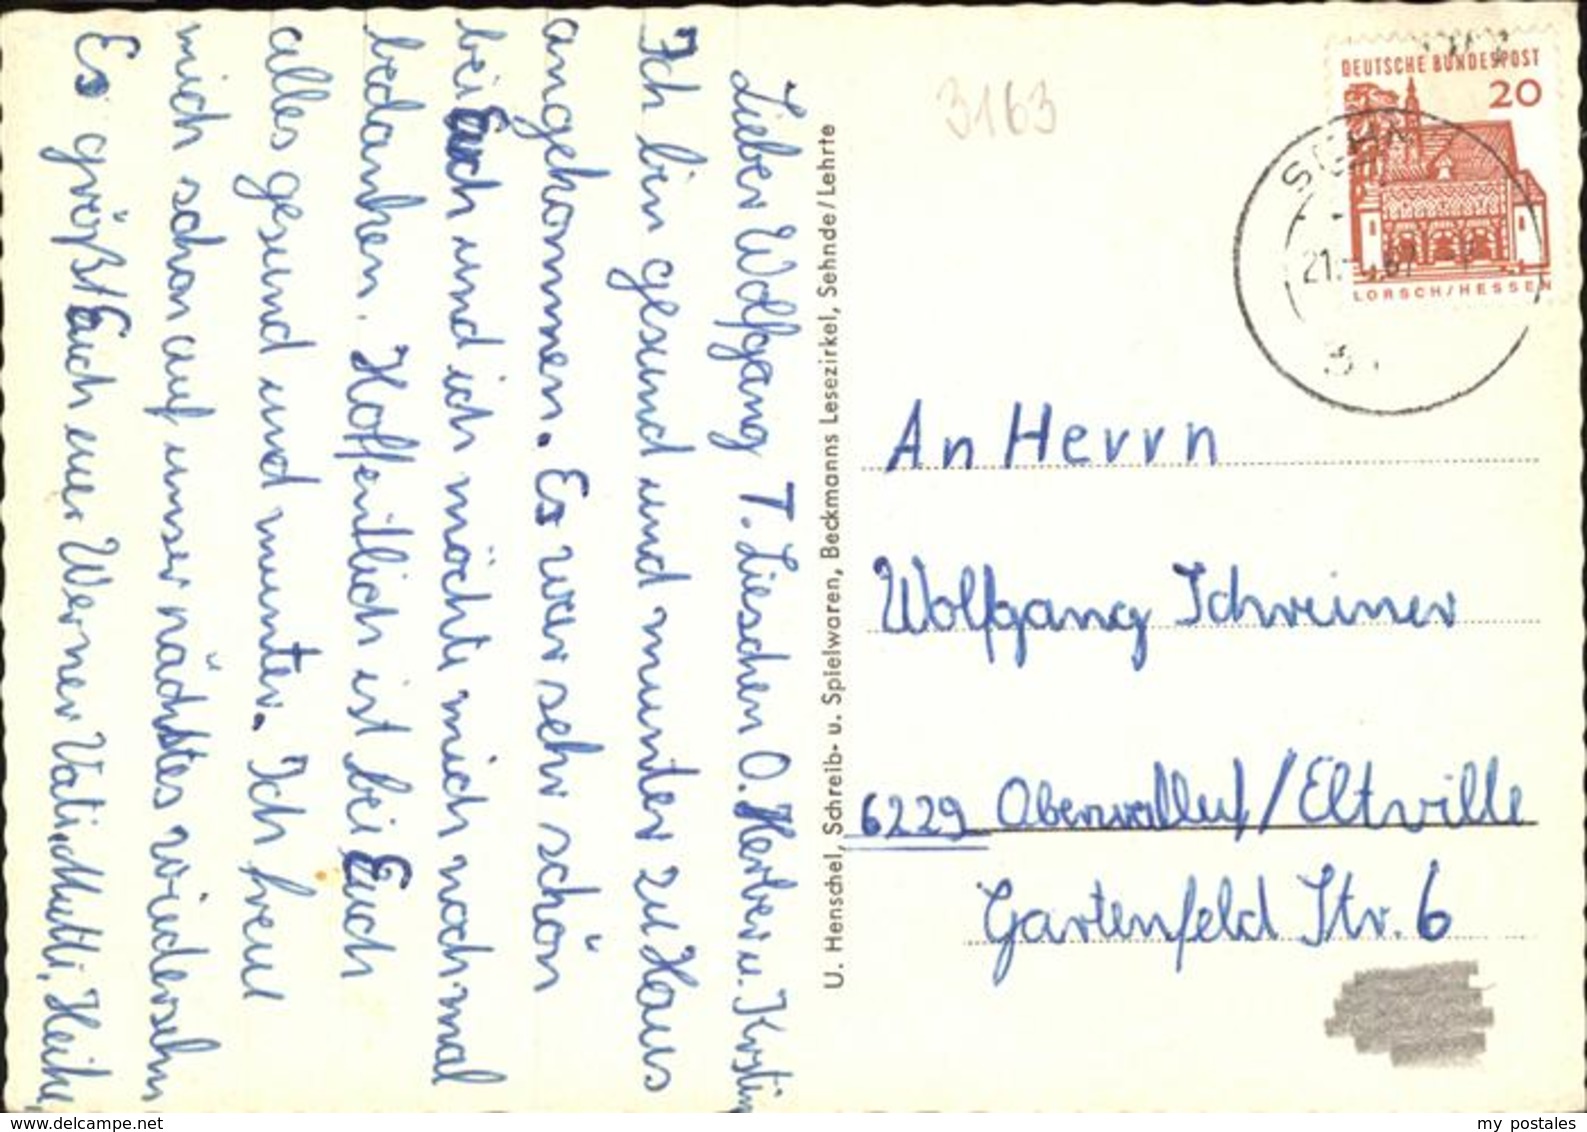 Lieber Wolfgang T. Lieschen O. Herber u. Krstin
Ich bin gesund und munter zu Haus
angekommen. Es war sehr schön
bei Euch und ich möchte mich nochmal
bedanken. Hoffentlich ist bei Euch
alles gesund und munter. Ich freu
mich schon auf unser nächstes wiedersehn
Es größst Euch euer Werner Vati, Mutti, Heike,
U. Henschel, Schreib- u. Spielwaren, Beckmanns Lesezirkel, Sehnde/Lehrte
3163
DEUTSCHE BUNDESPOST
20
LORSCH/HESSEN
21. 67
An Herrn
Wolfgang Schreiner
6229 Oberwalluf/Eltville
Gartenfeld Str. 6
www.delcampe.net
my postales